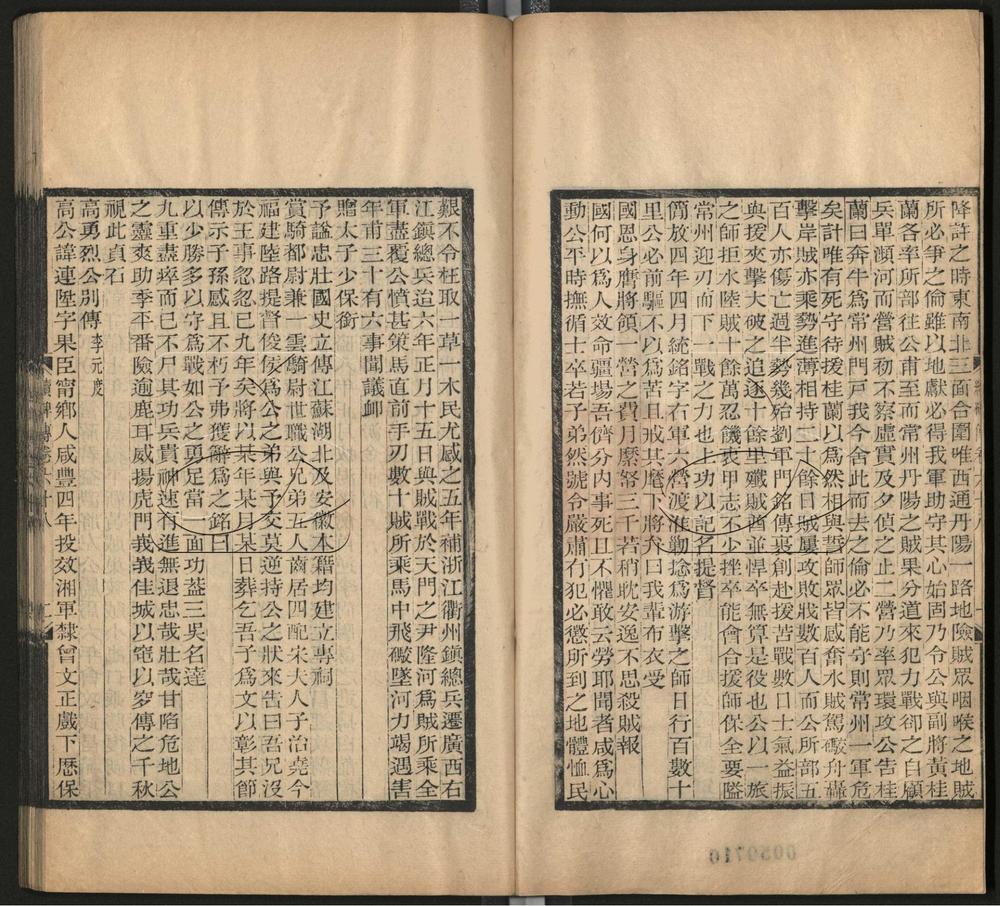 降許之時東南北三面合圍唯西通丹陽一路地險賊眾咽喉之地賊
所必爭之倫雖以地獻必得我軍助守其心始固乃令公與副將黃桂
蘭各率所部往公甫至而常州丹陽之賊果分道來犯力戰卻之自顧
兵單瀕河而營賊初不察虛實及夕偵之止二營乃率眾環攻公告桂
蘭曰奔牛為常州門戶我今舍此而去之倫必不能守則常州一軍危
矣計唯有死守待援桂蘭以為然相與誓師眾皆感奮水賊駕礮舟轟
擊岸賊亦乘勢進薄相持二十餘日賊屢攻敗戕數百人而公所部五
百人亦傷亡過半勢幾殆劉軍門銘傳裹創赴援苦戰數日士氣益振
與援夾擊大破之追逐十餘里殲賊酋並悍卒無算是役也公以一旅
之師拒水陸賊十餘萬忍饑衷甲志不少挫卒能會合援師保全要隘
常州迎刃而下一戰之力也上功以記名提督
簡放四年四月統銘字右軍六營渡淮勦捻為游擊之師日行百數十
里公必前驅不以為苦且戒其麾下將弁曰我輩布衣受
國恩身膺將領一營之費月縻帑三千若稍耽安逸不思殺賊報
國何以為人效命疆場吾儕分內事死且不懼敢云勞耶聞者咸為心
動公平時撫循士卒若子弟然號令嚴肅有犯必懲所到之地體恤民
艱不令枉取一草一木民尤感之五年補浙江衢州鎮總兵遷廣西右
江鎮總兵迨六年正月十五日與賊戰於天門之尹隆河為賊所乘全
軍盡覆公憤甚策馬直前手刃數十賊所乘馬中飛礮墜河力竭遇害
年甫三十有六事聞議卹
贈太子少保銜
予諡忠壯國史立傳江蘇湖北及安徽本籍均建立專祠
賞騎都尉兼一雲騎尉世職公兄弟五人齒居四配宋夫人子治堯今
福建陸路提督俊侯為公之弟與予交莫逆持公之狀來告曰吾兄沒
於王事忽忽已九年矣將以某年某月某日葬乞吾子為文以彰其節
傳示子孫感且不朽予弗獲辭為之銘曰
以少勝多以守為戰如公之勇足當一面功蓋三吳名達
九重盡瘁而已不尸其功兵貴神速有進無退忠哉壯哉甘陷危地公
之靈爽助季平番險逾鹿耳威揚虎門義義佳城以窀以穸傳之千秋
視此貞石
高勇烈公別傳 李元度
高公諱連陞字果臣甯鄉人咸豐四年投效湘軍隸曾文正戲下歷保